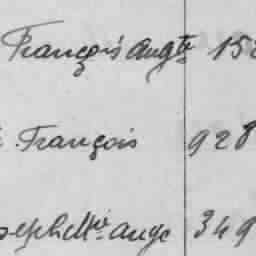 François Augte 15
François 928
oseph Mie ange 349